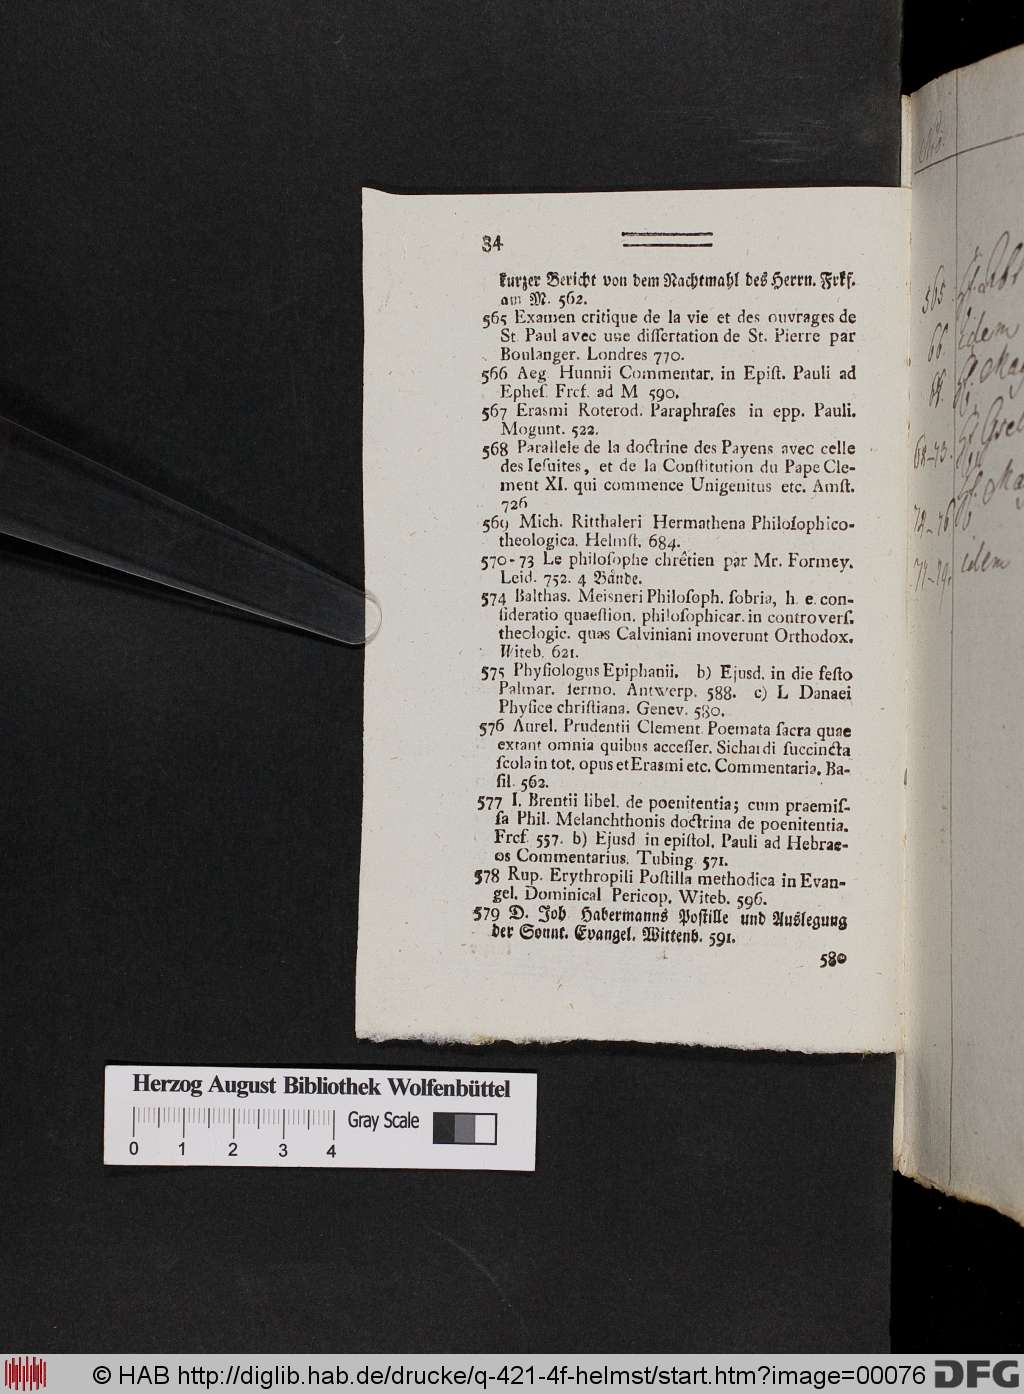 34
kurzer Bericht von dem Nachtmahl des Herrn. Frkf.
am M. 562.
565 Examen critique de la vie et des ouvrages de
St. Paul avec une dissertation de St. Pierre par
Boulanger. Londres 770.
566 Aeg. Hunnii Commentar. in Epist. Pauli ad
Ephes. Frcf. ad M 590.
567 Erasmi Roterod. Paraphrases in epp. Pauli.
Mogunt. 522.
568 Parallele de la doctrine des Payens avec celle
des Iesuites, et de la Constitution du Pape Cle-
ment XI. qui commence Unigenitus etc. Amst.
726
569 Mich. Ritthaleri Hermathena Philosophico-
theologica. Helmst. 684.
570-73 Le philosophe chrêtien par Mr. Formey.
Leid. 752. 4 Bände.
574 Balthas. Meisneri Philosoph. sobria, h. e. con-
sideratio quaestion. philosophicar. in controvers.
theologic. quas Calviniani moverunt Orthodox.
Witeb. 621.
575 Physiologus Epiphanii. b) Ejusd. in die festo
Palmar. sermo. Antwerp. 588. c) L Danaei
Physice christiana. Genev. 580.
576 Aurel. Prudentii Clement. Poemata sacra quae
extant omnia quibus accesser. Sichardi succincta
scola in tot. opus et Erasmi etc. Commentaria. Ba-
sil. 562.
577 I. Brentii libel. de poenitentia; cum praemis-
sa Phil. Melanchthonis doctrina de poenitentia.
Frcf. 557. b) Ejusd in epistol. Pauli ad Hebrae-
os Commentarius. Tubing. 571.
578 Rup. Erythropili Postilla methodica in Evan-
gel. Dominical Pericop. Witeb. 596.
579 D. Joh Habermanns Postille und Auslegung
der Sonnt. Evangel. Wittenb. 591.
580
565
66 Idem
68-73.
74-76
77-79. idem
Herzog August Bibliothek Wolfenbüttel
Gray Scale
0 1 2 3 4
© HAB http://diglib.hab.de/drucke/q-421-4f-helmst/start.htm?image=00076
DFG